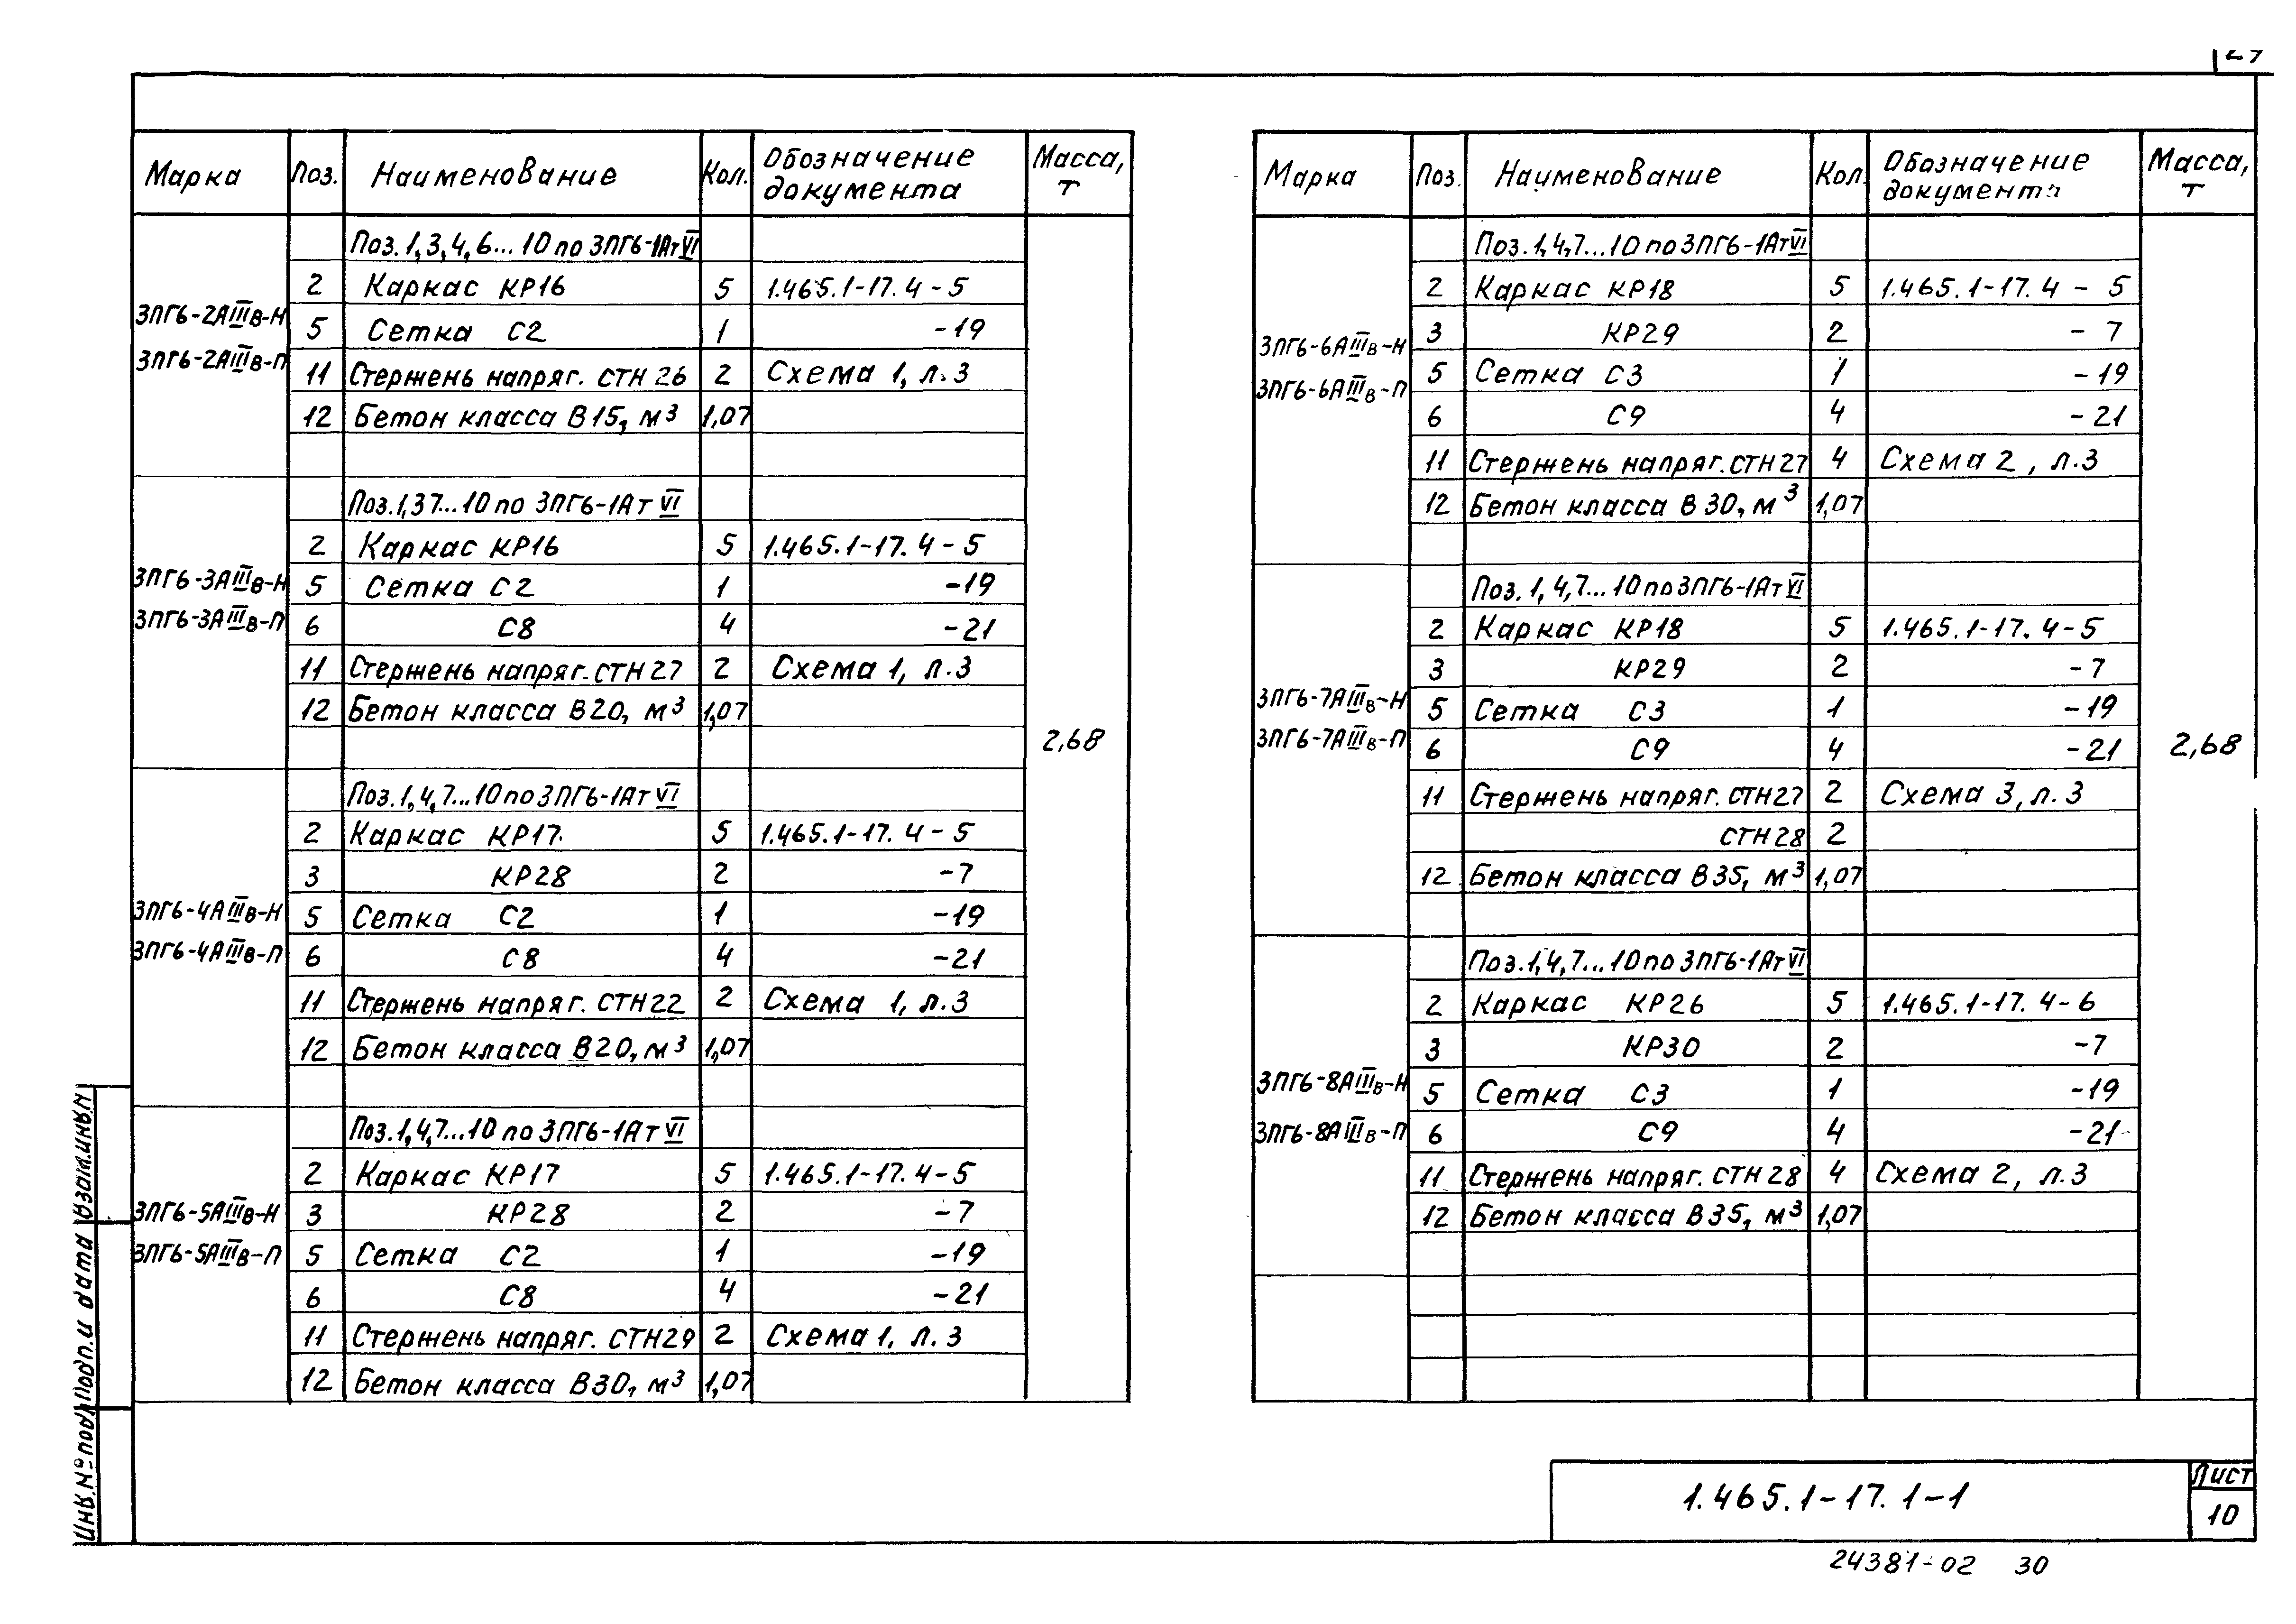 Марка Поз. Наименование Кол. Обозначение документа Масса, т
Поз. 1, 3, 4, 6... 10 по 3ПГ6-1АтVI
3ПГ6-2АIIIв-Н
3ПГ6-2АIIIв-П
2 Каркас КР16 5 1.465.1-17.4-5
5 Сетка С2 1 -19
11 Стержень напряг. СТН26 2 Схема 1, л.3
12 Бетон класса В15, м³ 1,07
Поз. 1,37... 10 по 3ПГ6-1АтVI
3ПГ6-3АIIIв-Н
3ПГ6-3АIIIв-П
2 Каркас КР16 5 1.465.1-17.4-5
5 Сетка С2 1 -19
6 С8 4 -21
11 Стержень напряг. СТН27 2 Схема 1, л.3
12 Бетон класса В20, м³ 1,07
2,68
Поз. 1, 4, 7... 10 по 3ПГ6-1АтVI
3ПГ6-4АIIIв-Н
3ПГ6-4АIIIв-П
2 Каркас КР17 5 1.465.1-17.4-5
3 КР28 2 -7
5 Сетка С2 1 -19
6 С8 4 -21
11 Стержень напряг. СТН22 2 Схема 1, л.3
12 Бетон класса В20, м³ 1,07
Поз. 1, 4, 7... 10 по 3ПГ6-1АтVI
3ПГ6-5АIIIв-Н
3ПГ6-5АIIIв-П
2 Каркас КР17 5 1.465.1-17.4-5
3 КР28 2 -7
5 Сетка С2 1 -19
6 С8 4 -21
11 Стержень напряг. СТН29 2 Схема 1, л.3
12 Бетон класса В30, м³ 1,07
Марка Поз. Наименование Кол. Обозначение документа Масса, т
Поз. 1, 4, 7... 10 по 3ПГ6-1АтVI
3ПГ6-6АIIIв-Н
3ПГ6-6АIIIв-П
2 Каркас КР18 5 1.465.1-17.4-5
3 КР29 2 -7
5 Сетка С3 1 -19
6 С9 4 -21
11 Стержень напряг. СТН27 4 Схема 2, л.3
12 Бетон класса В30, м³ 1,07
Поз. 1, 4, 7... 10 по 3ПГ6-1АтVI
3ПГ6-7АIIIв-Н
3ПГ6-7АIIIв-П
2 Каркас КР18 5 1.465.1-17.4-5
3 КР29 2 -7
5 Сетка С3 1 -19
6 С9 4 -21
2,68
11 Стержень напряг. СТН27 2 Схема 3, л.3
СТН28 2
12 Бетон класса В35, м³ 1,07
Поз. 1, 4, 7... 10 по 3ПГ6-1АтVI
3ПГ6-8АIIIв-Н
3ПГ6-8АIIIв-П
2 Каркас КР26 5 1.465.1-17.4-6
3 КР30 2 -7
5 Сетка С3 1 -19
6 С9 4 -21
11 Стержень напряг. СТН28 4 Схема 2, л.3
12 Бетон класса В35, м³ 1,07
Инв.№подл. Подп.и дата Взам.инв.№
1.465.1-17.1-1
Лист
10
24381-02 30